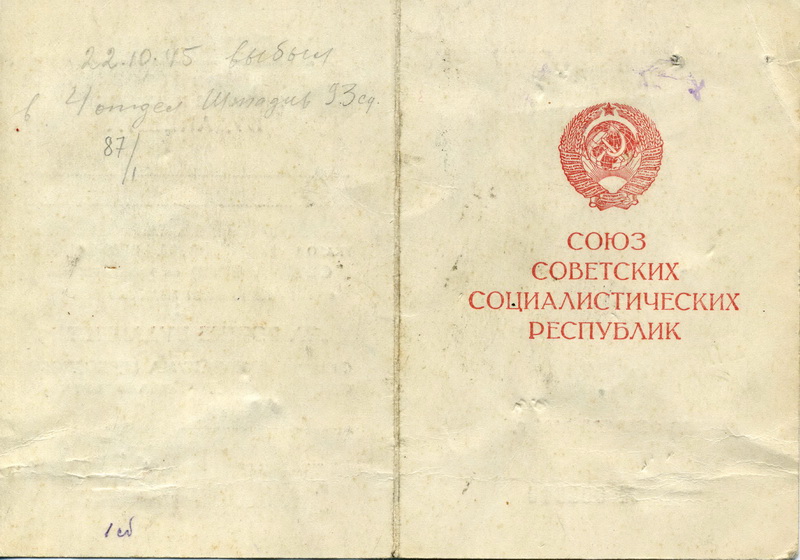 22.10.45 выбыл
в 4 отдел 93 сд.
87/1
1 сб
СОЮЗ
СОВЕТСКИХ
СОЦИАЛИСТИЧЕСКИХ
РЕСПУБЛИК